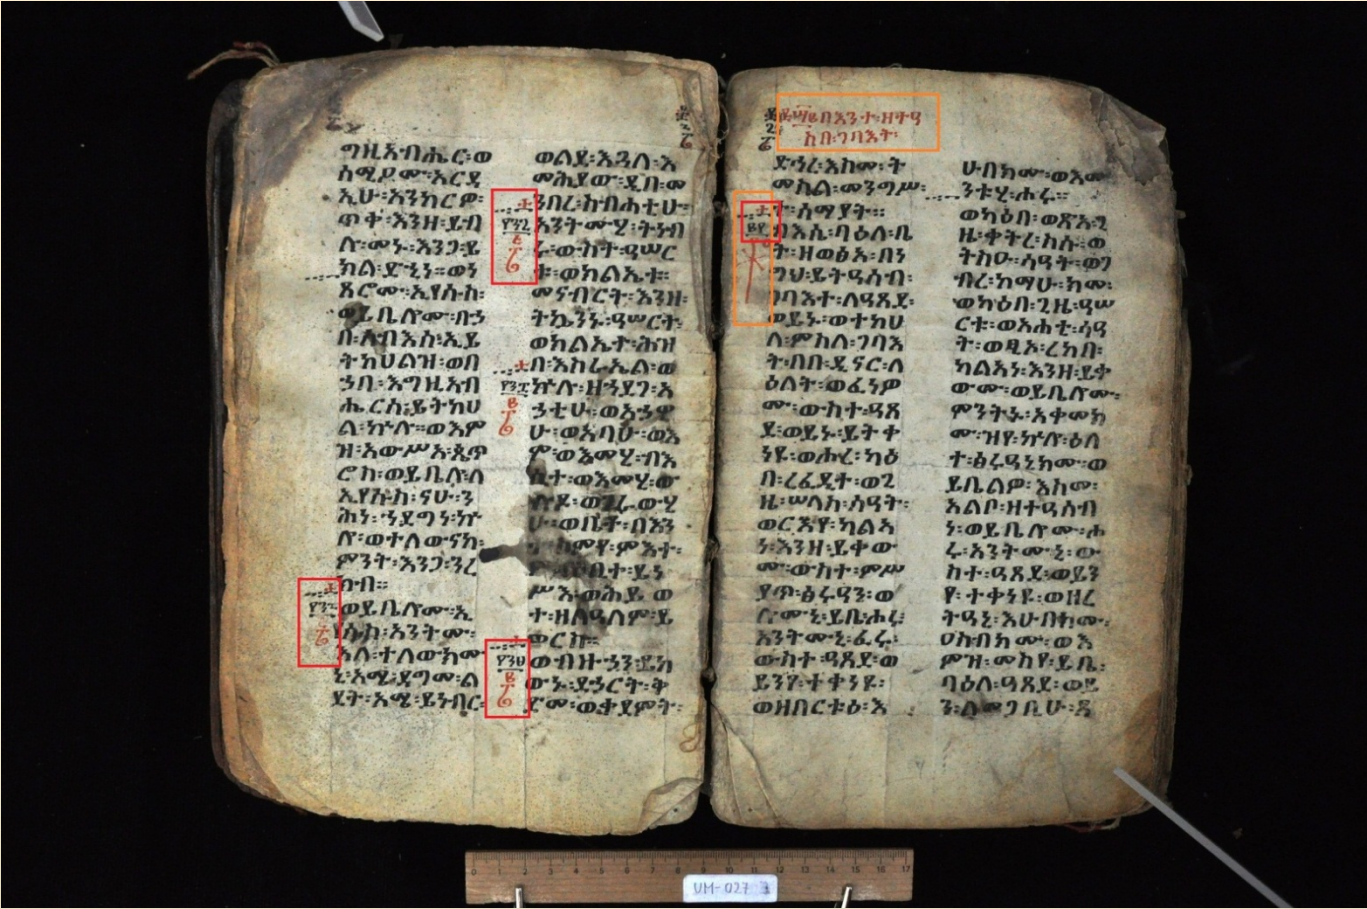 ግዚአብሔር፡ወ
ሰሚዖሙ፡አርዳ
ኢሁ፡አንከርዎ፡
ጥቀ፡እንዘ፡ይብ
ሉ፡መኑ፡እንጋ፡ይ
ክል፡ድኂነ።ወነ
ጸሮሙ፡ኢየሱስ፡
ወይቤሎሙ፡በኃ
በ፡ሰብእሰ፡ኢይ
ትከሀልዝ፡ወበ
ኃበ፡እግዚአብ
ሔርሰ፡ይትከሀ
ል፡ኵሉ።ወእም
ዝ፡አውሥአ፡ጴጥ
ሮስ፡ወይቤሎ፡ለ
ኢየሱስ፡ናሁ፡ን
ሕነ፡ኀደግነ፡ኵ
ሎ፡ወተለውናከ፡
ምንት፡እንጋ፡ንረ
ክብ።
፳፻፺
ወይቤሎሙ፡ኢ
የሱስ፡አንትሙ፡
እለ፡ተለውክሙ
ኒ፡አሜ፡ዳግመ፡ል
ደት፡አሜ፡ይነብር፡
ወልደ፡እጓለ፡እ
መሕያው፡ዲበ፡መ
ንበረ፡ስብሐቲሁ፡
አንትሙሂ፡ትነብ
ሩ፡ውስተ፡ዓሠር
ቱ፡ወክልኤቱ፡
መናብርት፡እንዘ፡
ትኴንኑ፡ዓሠርተ፡
ወክልኤተ፡ሕዝ
በ፡እስራኤል፡ወ
ኵሉ፡ዘኀደገ፡አ
ኃቲሁ፡ወአኃዊ
ሁ፡ወአባሁ፡ወእ
ሞ፡ወእመሂ፡ብእ
ሲተ፡ወእመሂ፡ው
ሉደ፡ወገራውሂ
ሁ፡ወቤተ፡በእን
ስምየ፡ምእተ፡
ይነ
ሥእ፡ወሕይወ
ተ፡ዘለዓለም፡ይ
ወርስ።
ወብዙኃን፡ይከ
ውኑ፡ደኃርት፡ቅ
ድመ፡ወቀደምት፡
በእንተ፡ዘተዓ
ሰበ፡ገባእት፡
ድኅረ፡እስመ፡ት
መስል፡መንግሥ
ተ፡ሰማያት።
ብእሴ፡ባዕለ፡ቤ
ት፡ዘወፅአ፡በነ
ግህ፡ይትዓሰብ፡
ገባእተ፡ለዓጸደ፡
ወይኑ፡ወተስሀ
ለ፡ምስለ፡ገባእ
ት፡በበ፡ዲናር፡ለ
ዕለት፡ወፈነዎ
ሙ፡ውስተ፡ዓጸ
ደ፡ወይኑ፡ይትቀ
ነዩ፡ወሖረ፡ካዕ
በ፡ረፈዲተ፡ወጊ
ዜ፡ሠላስ፡ሰዓት፡
ወርእየ፡ካልኣ
ነ፡እንዘ፡ይቀው
ሙ፡ውስተ፡ምሥ
ያጥ፡ፅሩዓን፡ወ
ሎሙኒ፡ይቤ፡ሑሩ፡
አንትሙኒ፡
ውስተ፡ዓጸደ፡ወ
ይንየ፡ተቀነዩ፡
ወዘበርቱዕ፡እ
ሁበክሙ፡ወእሙ
ንቱሂ፡ሖሩ።
ወካዕበ፡ወጽአ፡ጊ
ዜ፡ቀትረ፡ከሱ፡ወ
ትስዑ፡ሳዓት፡ወገ
ብረ፡ከማሁ፡ክመ፡
ወካዕበ፡ጊዜ፡ዓሠ
ርቱ፡ወአሐቲ፡ሳዓ
ት፡ወፂኦ፡ረከበ፡
ካልኣነ፡እንዘ፡ይቀ
ውሙ፡ወይቤሎሙ፡
ምንትኑ፡አቀመክ
ሙ፡ዝየ፡ኵሎ፡ዕለ
ተ፡ፅሩዓኒክሙ፡ወ
ይቤልዎ፡እስመ፡
አልቦ፡ዘተዓሰብ
ነ፡ወይቤሎሙ፡ሑ
ሩ፡አንትሙኒ፡ው
ስተ፡ዓጸደ፡ወይን
የ፡ተቀነዩ፡ወዘረ
ትዓኒ፡እሁበክሙ፡
ዐስበክሙ፡ወእ
ምዝ፡መስየ፡ይቤ፡
ባዕለ፡ዓጸደ፡ወይ
ን፡ለመጋቢሁ፡ጸ
0 1 2 3 4 5 6 7 8 9 10 11 12 13 14 15 16 17
UM-027